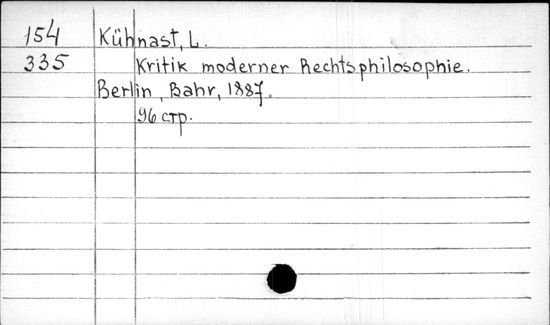 154 Kühnast, L.
335 Kritik moderner Rechtsphilosophie.
Berlin, Bahr, 1887.
96 стр.